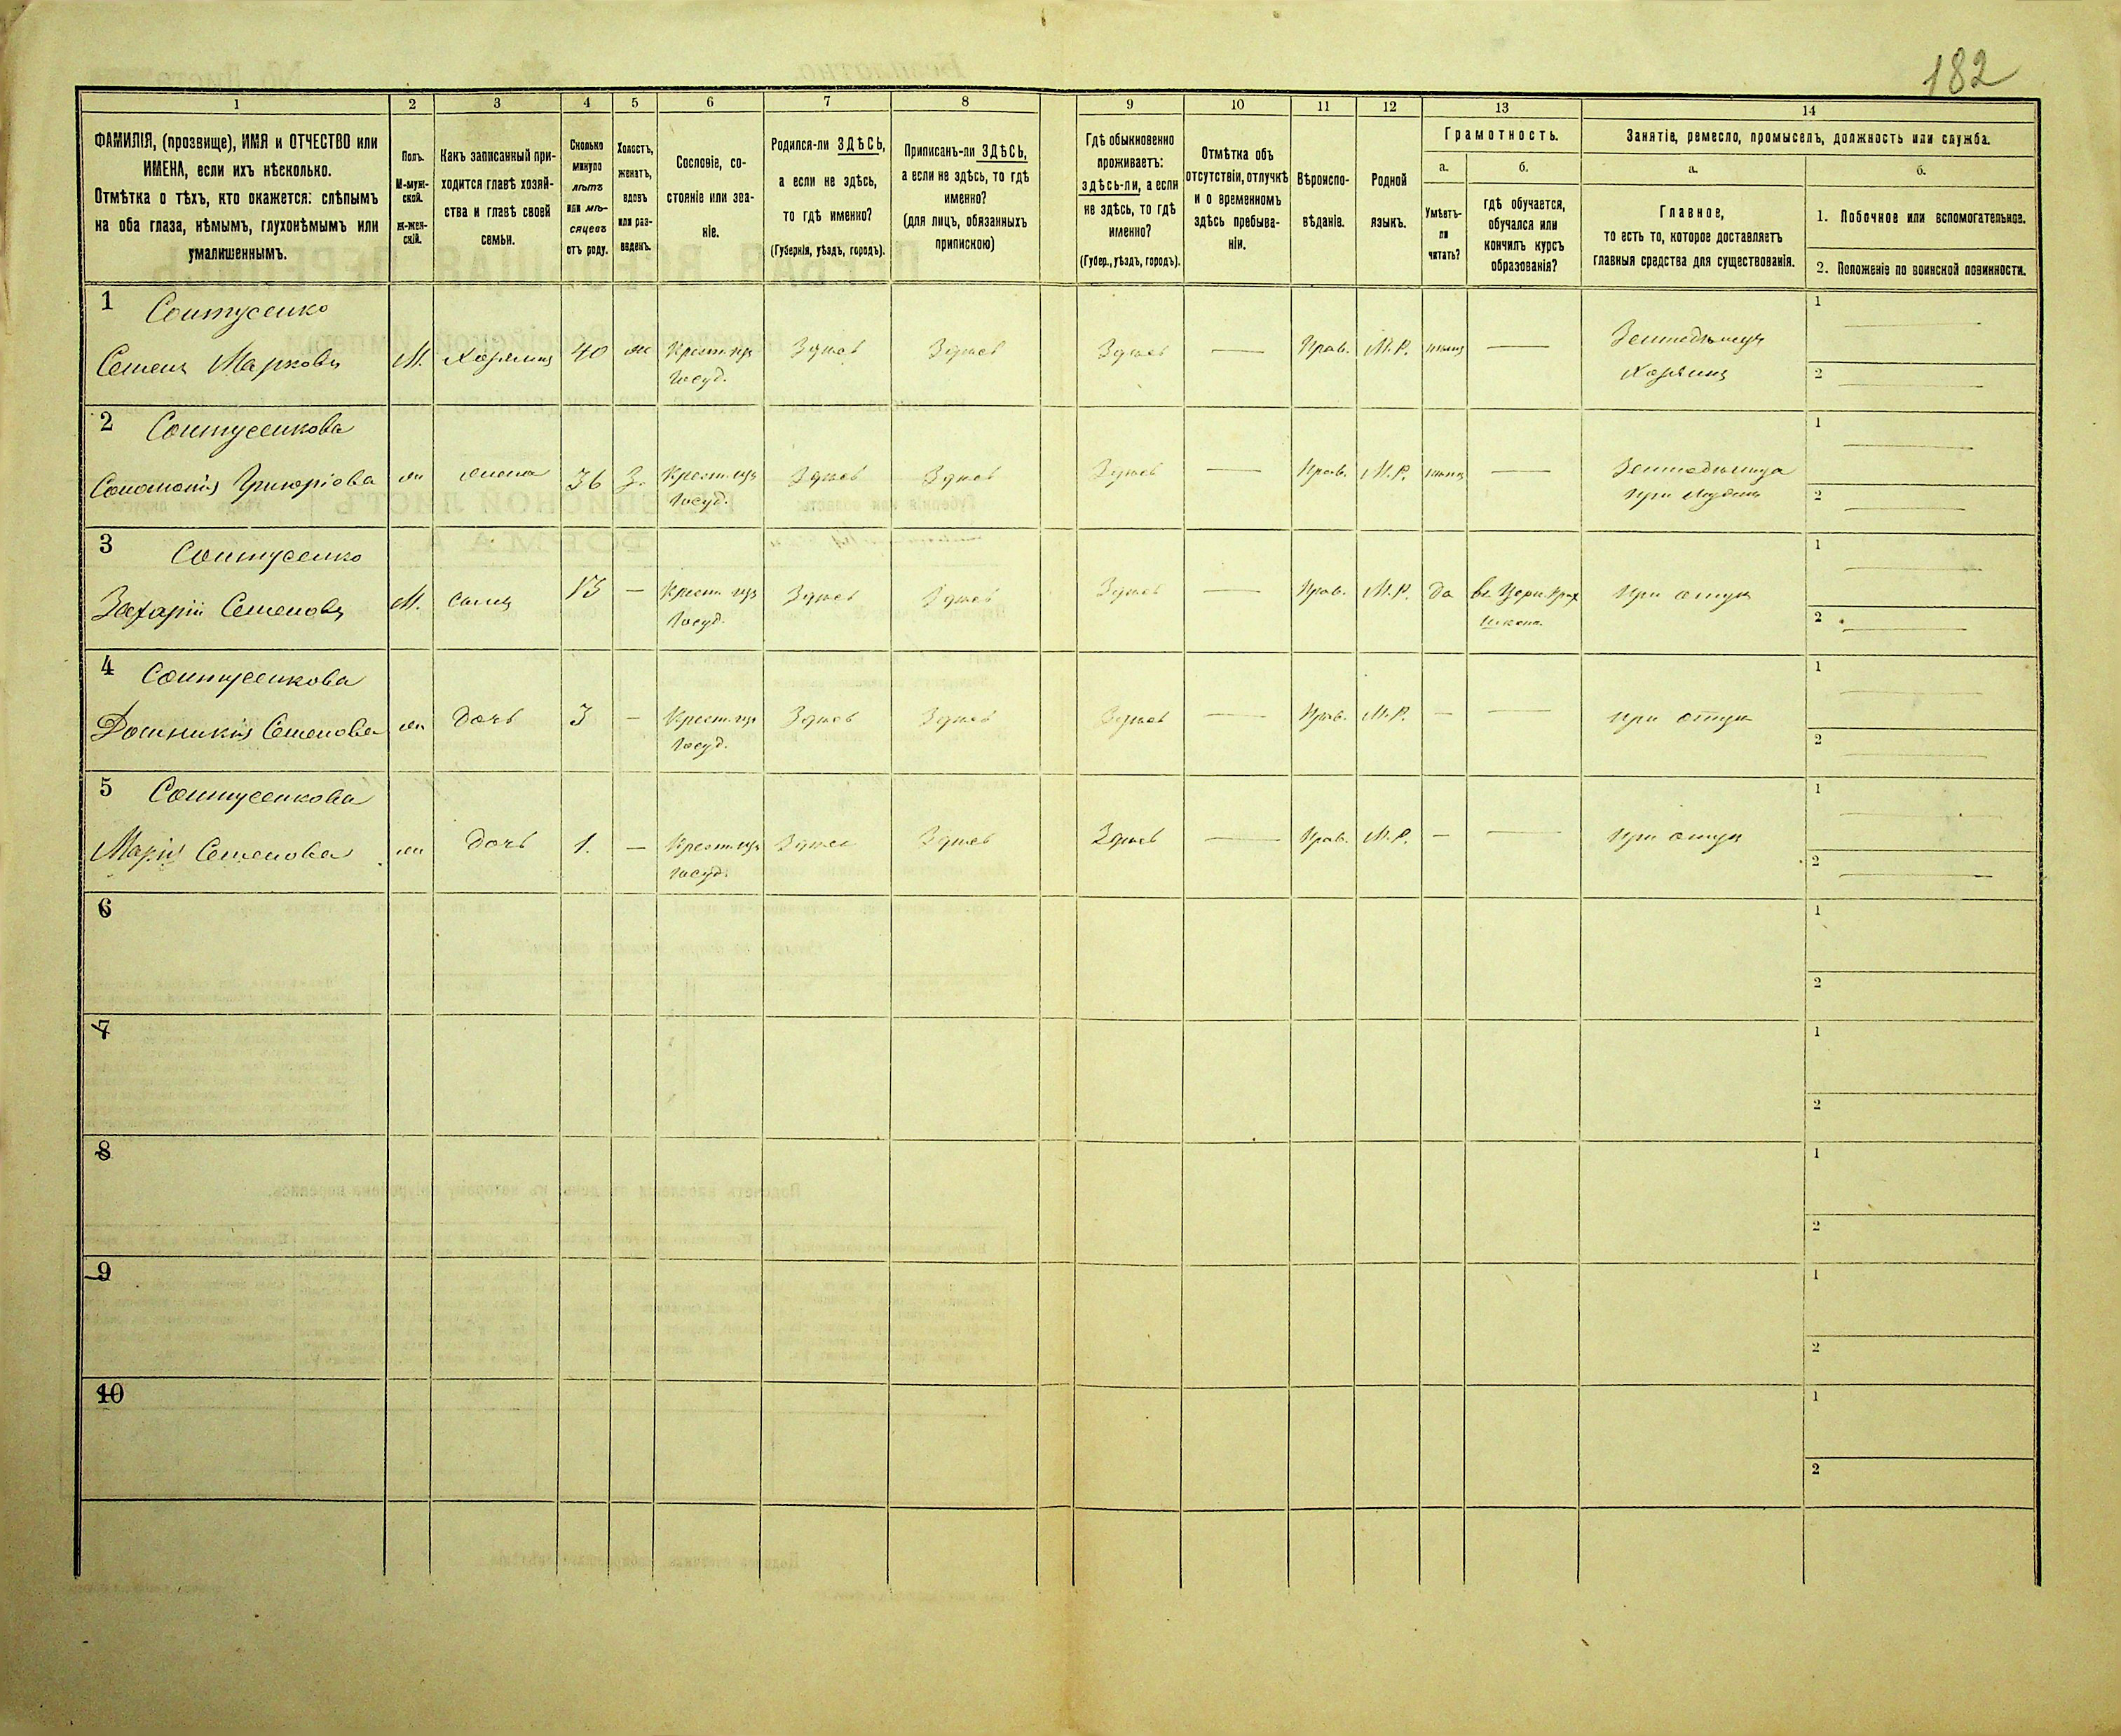 182
1 2 3 4 5 6 7 8 9 10 11 12 13 14
ФАМИЛІЯ, (прозвище), ИМЯ и ОТЧЕСТВО или
ИМЕНА, если ихъ нѣсколько.
Отмѣтка о тѣхъ, кто окажется: слѣпымъ
на оба глаза, нѣмымъ, глухонѣмымъ или
умалишеннымъ.
Полъ.
М-муж-
ской.
Ж-жен-
скій.
Какъ записанный при-
ходится главѣ хозяй-
ства и главѣ своей
семьи.
Сколько
минуло
лѣтъ
или мѣ-
сяцевъ
отъ роду.
Холостъ,
женатъ,
вдовъ
или раз-
веденъ.
Сословіе, со-
стояніе или зва-
ніе.
Родился-ли ЗДѢСЬ,
а если не здѣсь,
то гдѣ именно?
(Губернія, уѣздъ, городъ).
Приписанъ-ли ЗДѢСЬ,
а если не здѣсь, то гдѣ
именно?
(для лицъ, обязанныхъ
припискою)
Гдѣ обыкновенно
проживаетъ:
здѣсь-ли, а если
не здѣсь, то гдѣ
именно?
(Губер., уѣздъ, городъ).
Отмѣтка объ
отсутствіи, отлучкѣ
и о временномъ
здѣсь пребыва-
ніи.
Вѣроиспо-
вѣданіе.
Родной
языкъ.
Грамотность.
а.
Умѣетъ-
ли
читать?
б.
гдѣ обучается,
обучался или
кончилъ курсъ
образованія?
Занятіе, ремесло, промыселъ, должность или служба.
а.
Главное,
то есть то, которое доставляетъ
главныя средства для существованія.
б.
1. Побочное или вспомогательное.
2. Положеніе по воинской повинности.
1
Семенъ Марковъ М. Хозяинъ 40 ж Крест. изъ Здѣсь Здѣсь Здѣсь — Прав. М.Р. нѣтъ — Земледѣлецъ 1 —
Госуд. Хозяинъ 2 —
2
Григоріова ж жена 36 З. Крест. изъ Здѣсь Здѣсь Здѣсь — Прав. М.Р. нѣтъ — 1 —
Госуд. 2 —
3
Захарій Семеновъ М. сынъ 13 — Крест. изъ Здѣсь Здѣсь Здѣсь — Прав. М.Р. да въ Церк. Прих. при отцѣ 1 —
Госуд. школѣ. 2 —
4
Домникія Семенова ж дочь 3 — Крест. изъ Здѣсь Здѣсь Здѣсь — Прав. М.Р. — — при отцѣ 1 —
Госуд. 2 —
5
Марія Семенова ж дочь 1. — Крест. изъ Здѣсь Здѣсь Здѣсь — Прав. М.Р. — — при отцѣ 1 —
Госуд. 2 —
6 1
2
7 1
2
8 1
2
9 1
2
10 1
2